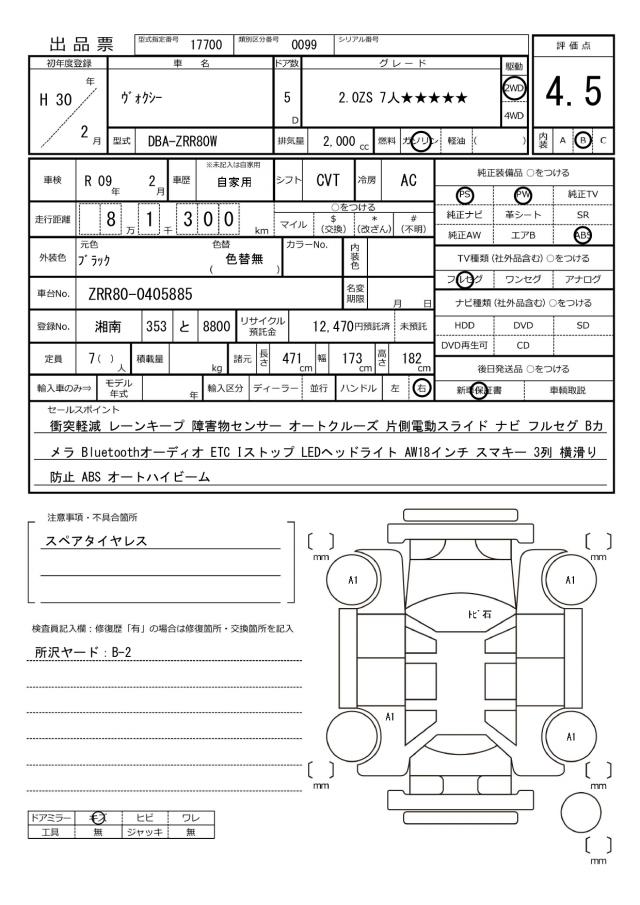 出品票 型式指定番号 17700 類別区分番号 0099 シリアル番号
評価点
4.5
内装 A B C
初年度登録 車名 ドア数 グレード 駆動
H 30 年 2 月 ヴォクシー 5 D 2.0ZS 7人★★★★★ 2WD 4WD
型式 DBA-ZRR80W 排気量 2,000 cc 燃料 ガソリン 軽油 ( )
車検 R 09 年 2 月 車歴 ※未記入は自家用 自家用 シフト CVT 冷房 AC
走行距離 8 万 1 千 3 0 0 km ○をつける
マイル $ (交換) * (改ざん) # (不明)
外装色 元色 ブラック 色替 ( 色替無 ) カラーNo. 内装色
車台No. ZRR80-0405885 名変期限 月 日
登録No. 湘南 353 と 8800 リサイクル預託金 12,470円預託済 未預託
定員 7( ) 人 積載量 kg 諸元 長さ 471 cm 幅 173 cm 高さ 182 cm
輸入車のみ⇒ モデル年式 年 輸入区分 ディーラー 並行 ハンドル 左 右
純正装備品 ○をつける
PS PW 純正TV
純正ナビ 革シート SR
純正AW エアB ABS
TV種類 (社外品含む) ○をつける
フルセグ ワンセグ アナログ
ナビ種類 (社外品含む) ○をつける
HDD DVD SD
DVD再生可 CD
後日発送品 ○をつける
新車保証書 車輌取説
セールスポイント
衝突軽減 レーンキープ 障害物センサー オートクルーズ 片側電動スライド ナビ フルセグ Bカ
メラ Bluetoothオーディオ ETC Iストップ LEDヘッドライト AW18インチ スマキー 3列 横滑り
防止 ABS オートハイビーム
注意事項・不具合箇所
スペアタイヤレス
検査員記入欄：修復歴「有」の場合は修復箇所・交換箇所を記入
所沢ヤード：B-2
ドアミラー キズ ヒビ ワレ
工具 無 ジャッキ 無
mm mm
A1 A1
トビ石
A1
A1
mm mm
mm